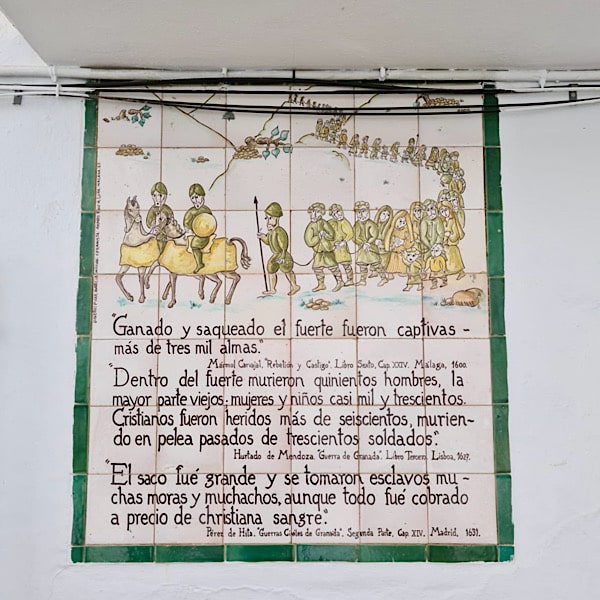 "Ganado y saqueado el fuerte fueron captivas -
más de tres mil almas."
Mármol Carvajal, "Rebelión y Castigo", Libro Sexto, Cap. XXIV. Málaga, 1600.
"Dentro del fuerte murieron quinientos hombres, la
mayor parte viejos; mujeres y niños casi mil y trescientos.
Cristianos fueron heridos más de seiscientos, murien-
do en pelea pasados de trescientos soldados".
Hurtado de Mendoza. "Guerra de Granada". Libro Tercero. Lisboa, 1627.
"El saco fué grande y se tomaron esclavos mu -
chas moras y muchachos, aunque todo fué cobrado
a precio de christiana sangre".
Pérez de Hita. "Guerras Civiles de Granada". Segunda Parte, Cap. XIV. Madrid, 1631.